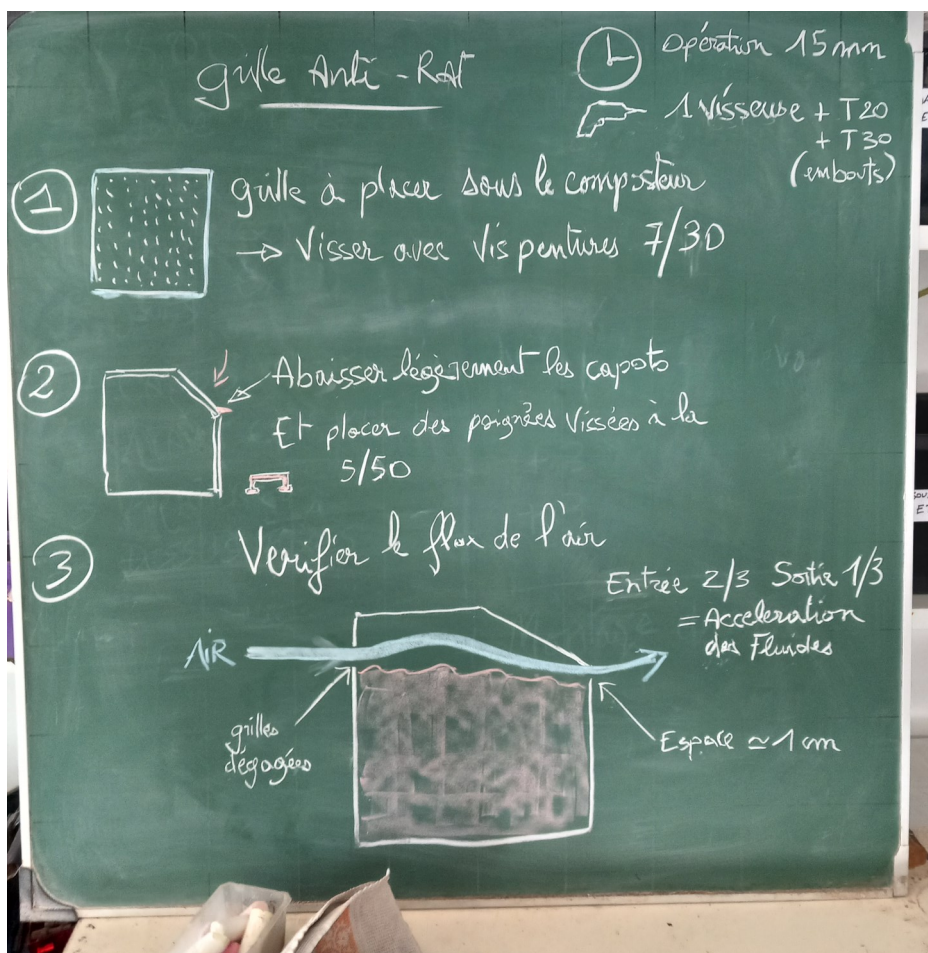 Grille Anti-RAT
Opération 15mm
1 Visseuse + T20
+ T30
(embouts)
1
grille à placer sous le composteur
→ Visser avec Vis pentures 7/30
2
Abaisser légèrement les capots
Et placer des poignées Vissées à la
5/50
3
Verifier le flux de l'air
Entrée 2/3 Sortie 1/3
= Acceleration
des Fluides
AIR
grilles
dégagées
Espace ≃ 1 cm